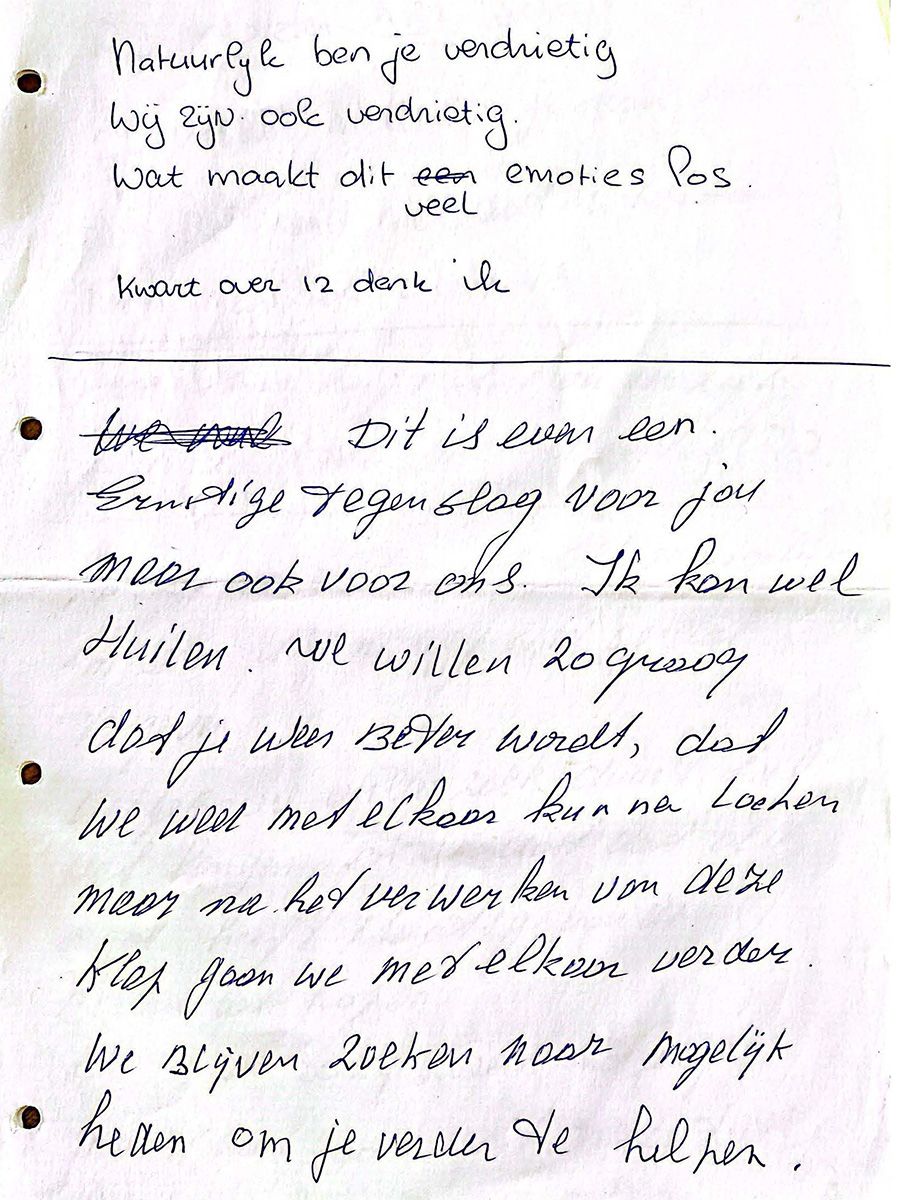 Natuurlyk ben je verdrietig
Wij zijn. ook verdrietig.
Wat maakt dit een emoties los.
veel
Kwart over 12 denk ik
Dit is even een.
Ernstige tegenslag voor jou
maar ook voor ons. Ik kan wel
Huilen. We willen zo graag
dat je weer Beter wordt, dat
We weer met elkaar kunne Lachen
maar na het verwerken van deze
Klap gaan we met elkaar verder.
We Blijven zoeken naar mogelijk
heden om je verder te helpen.